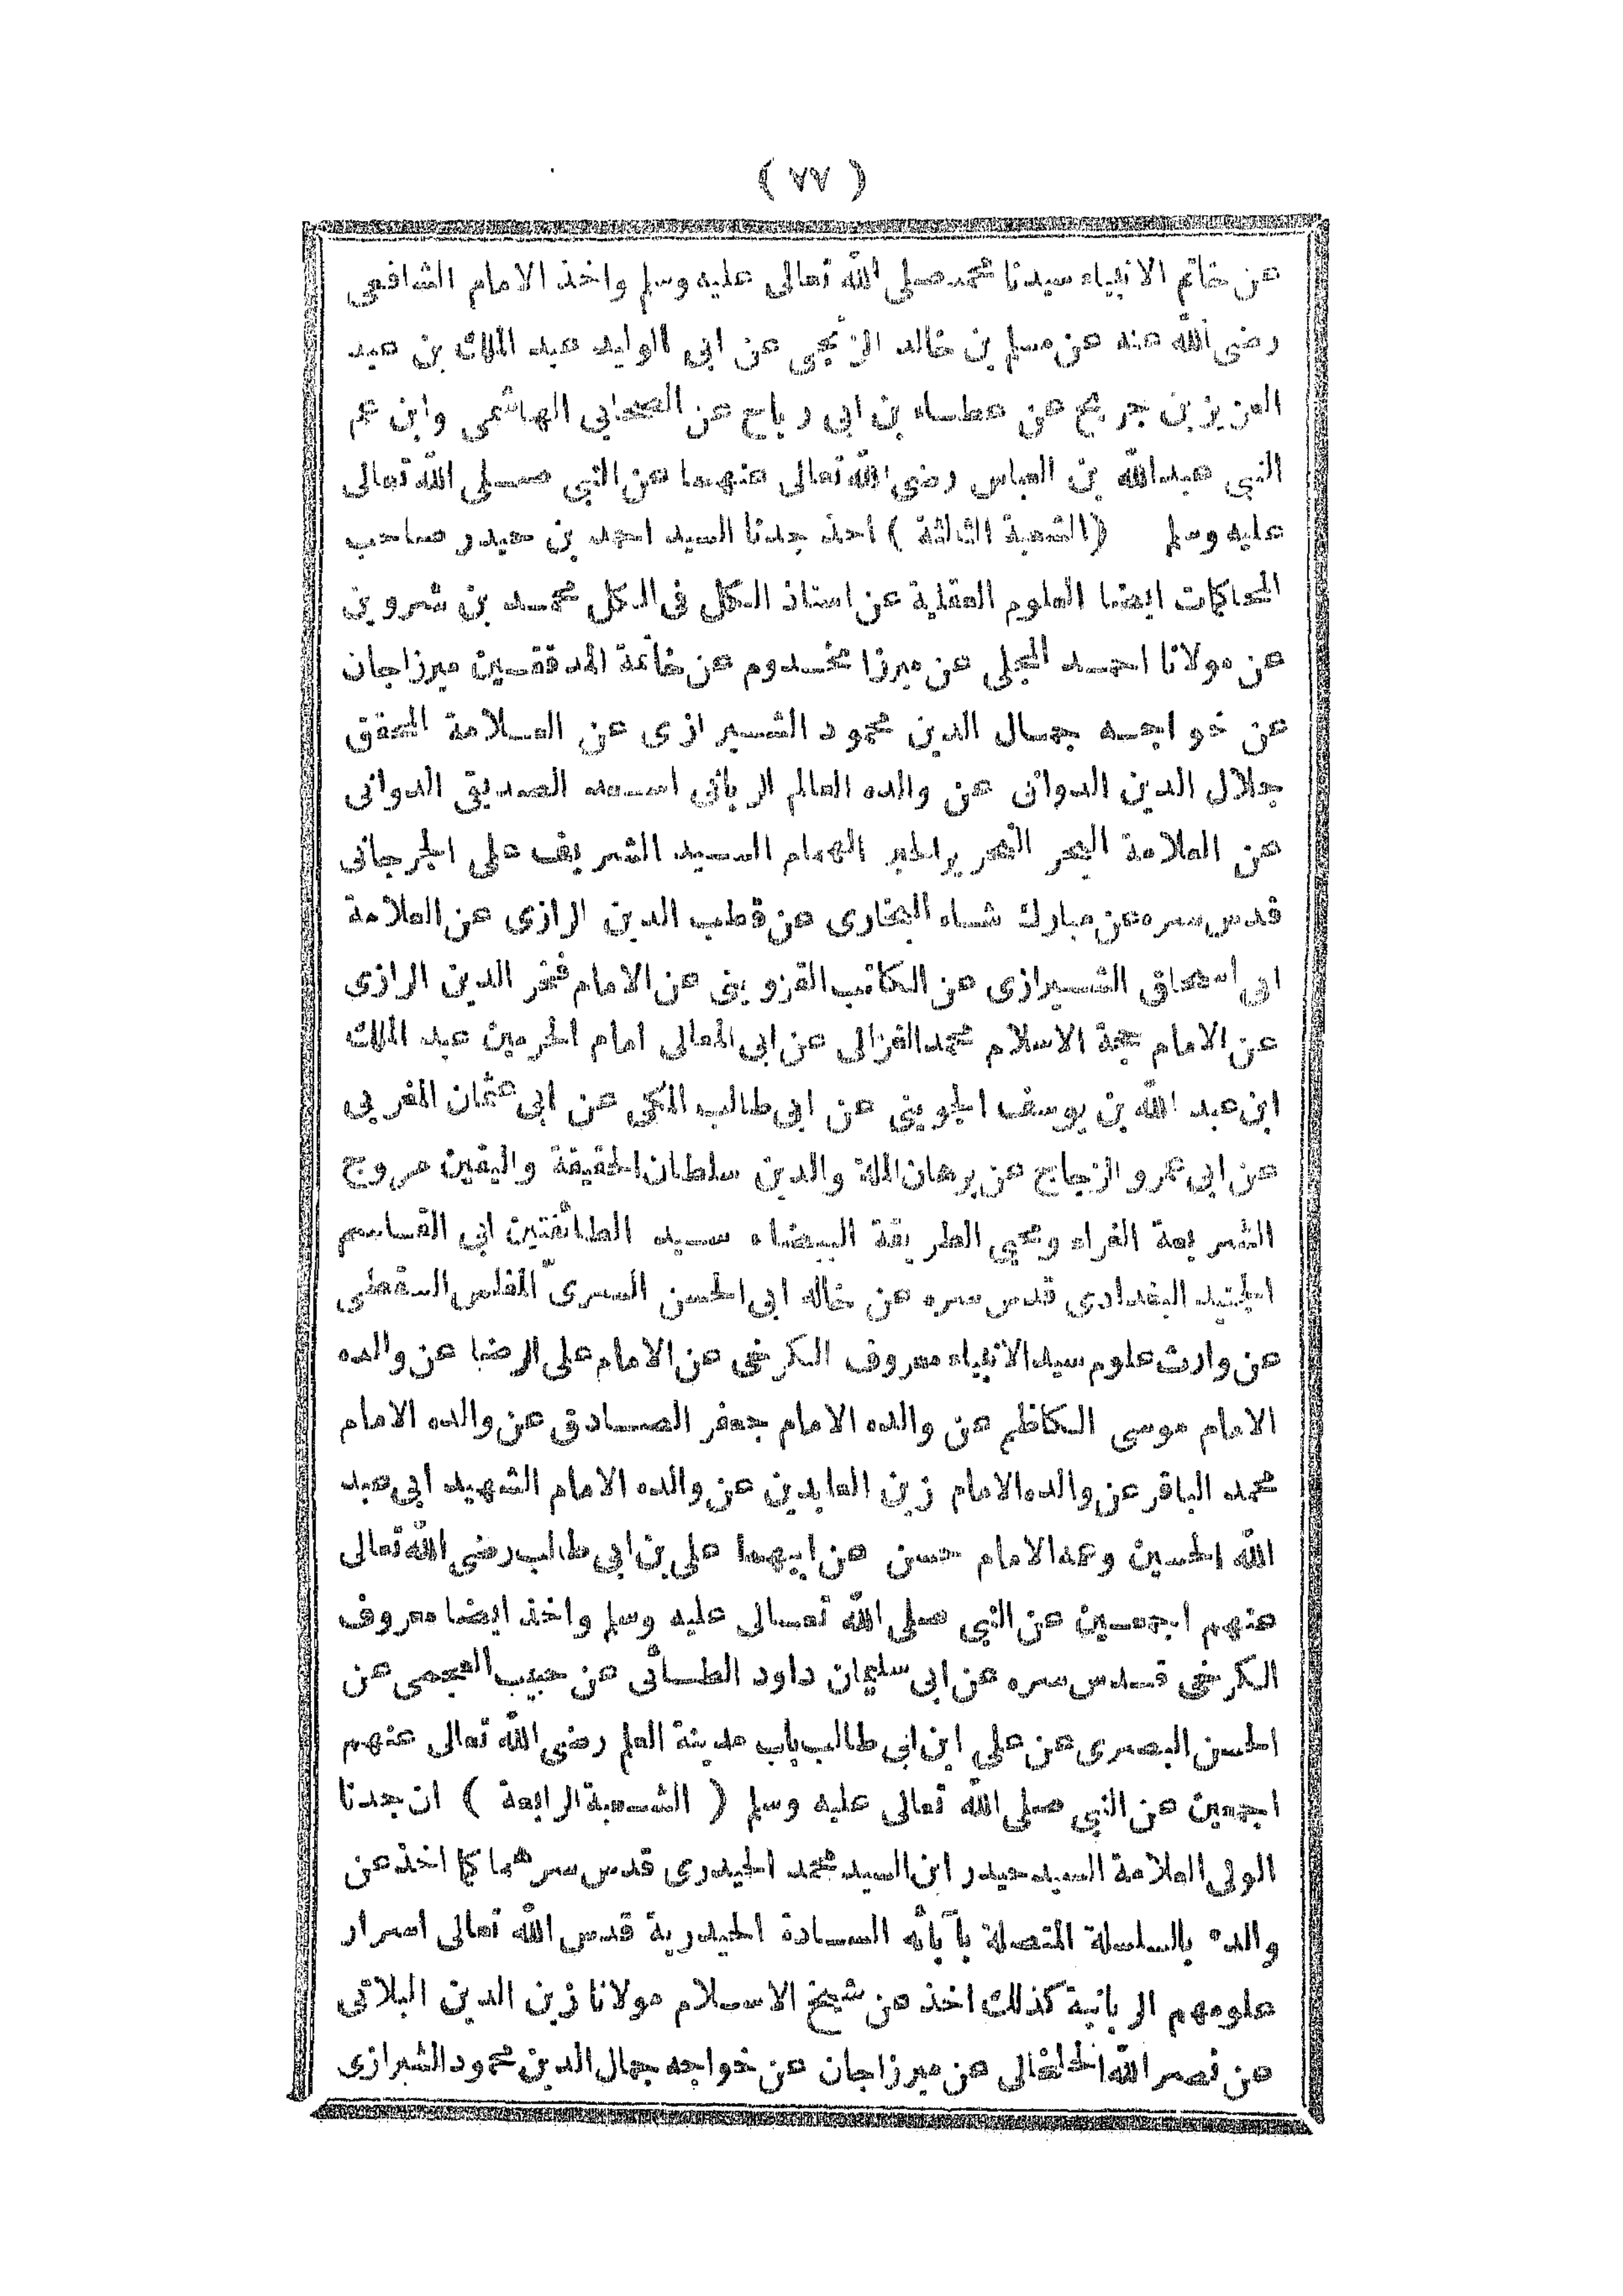 ( ٧٧ )
عن خاتم الانبياء سيدنا محمد صلى الله تعالى عليه وسلم واخذ الامام الشافعى
رضى الله عنه عن مسلم بن خالد الزنجى عن ابى الوليد عبد الملك بن عبد
العزيز بن جريج عن عطاء بن ابى رباح عن الصحابى الهاشمى وابن عم
النبى عبدالله بن العباس رضى الله تعالى عنهما عن النبى صلى الله تعالى
عليه وسلم ( الشعبة الثالثة ) اخذ جدنا السيد احمد بن حيدر صاحب
المحاكمات ايضا العلوم العقلية عن استاذ الكل فى الكل محمد بن شروين
عن مولانا احمد المجلى عن ميرزا مخدوم عن خاتمة المدققين ميرزاجان
عن خواجه جمال الدين محمود الشيرازى عن العلامة المحقق
جلال الدين الدوانى عن والده العالم الربانى اسعد الصديقى الدوانى
عن العلامة البحر النحرير الحبر الهمام السيد الشريف على الجرجانى
قدس سره عن مبارك شاه البخارى عن قطب الدين الرازى عن العلامة
ابى اسحاق الشيرازى عن الكاتب القزوينى عن الامام فخر الدين الرازى
عن الامام حجة الاسلام محمد الغزالى عن ابى المعالى امام الحرمين عبد الملك
ابن عبد الله بن يوسف الجوينى عن ابى طالب المكى عن ابى عثمان المغربى
عن ابى عمرو الزجاج عن برهان الملة والدين سلطان الحقيقة واليقين مروج
الشريعة الغراء ومحيى الطريقة البيضاء سيد الطائفتين ابى القاسم
الجنيد البغدادى قدس سره عن خاله ابى الحسن السرىّ المغلس السقطى
عن وارث علوم سيد الانبياء معروف الكرخى عن الامام على الرضا عن والده
الامام موسى الكاظم عن والده الامام جعفر الصادق عن والده الامام
محمد الباقر عن والده الامام زين العابدين عن والده الامام الشهيد ابى عبد
الله الحسين وعمه الامام حسن عن ابيهما على بن ابى طالب رضى الله تعالى
عنهم اجمعين عن النبى صلى الله تعالى عليه وسلم واخذ ايضا معروف
الكرخى قدس سره عن ابى سليمان داود الطائى عن حبيب العجمى عن
الحسن البصرى عن على ابن ابى طالب باب مدينة العلم رضى الله تعالى عنهم
اجمعين عن النبى صلى الله تعالى عليه وسلم ( الشعبة الرابعة ) ان جدنا
الولى العلامة السيد حيدر ابن السيد محمد الحيدرى قدس سرهما كما اخذ عن
والده بالسلسلة المتصلة بآبائه السادة الحيدرية قدس الله تعالى اسرار
علومهم الربانية كذلك اخذ عن شيخ الاسلام مولانا زين الدين البلاتى
عن نصر الله الخلخالى عن ميرزاجان عن خواجه جمال الدين محمود الشيرازى